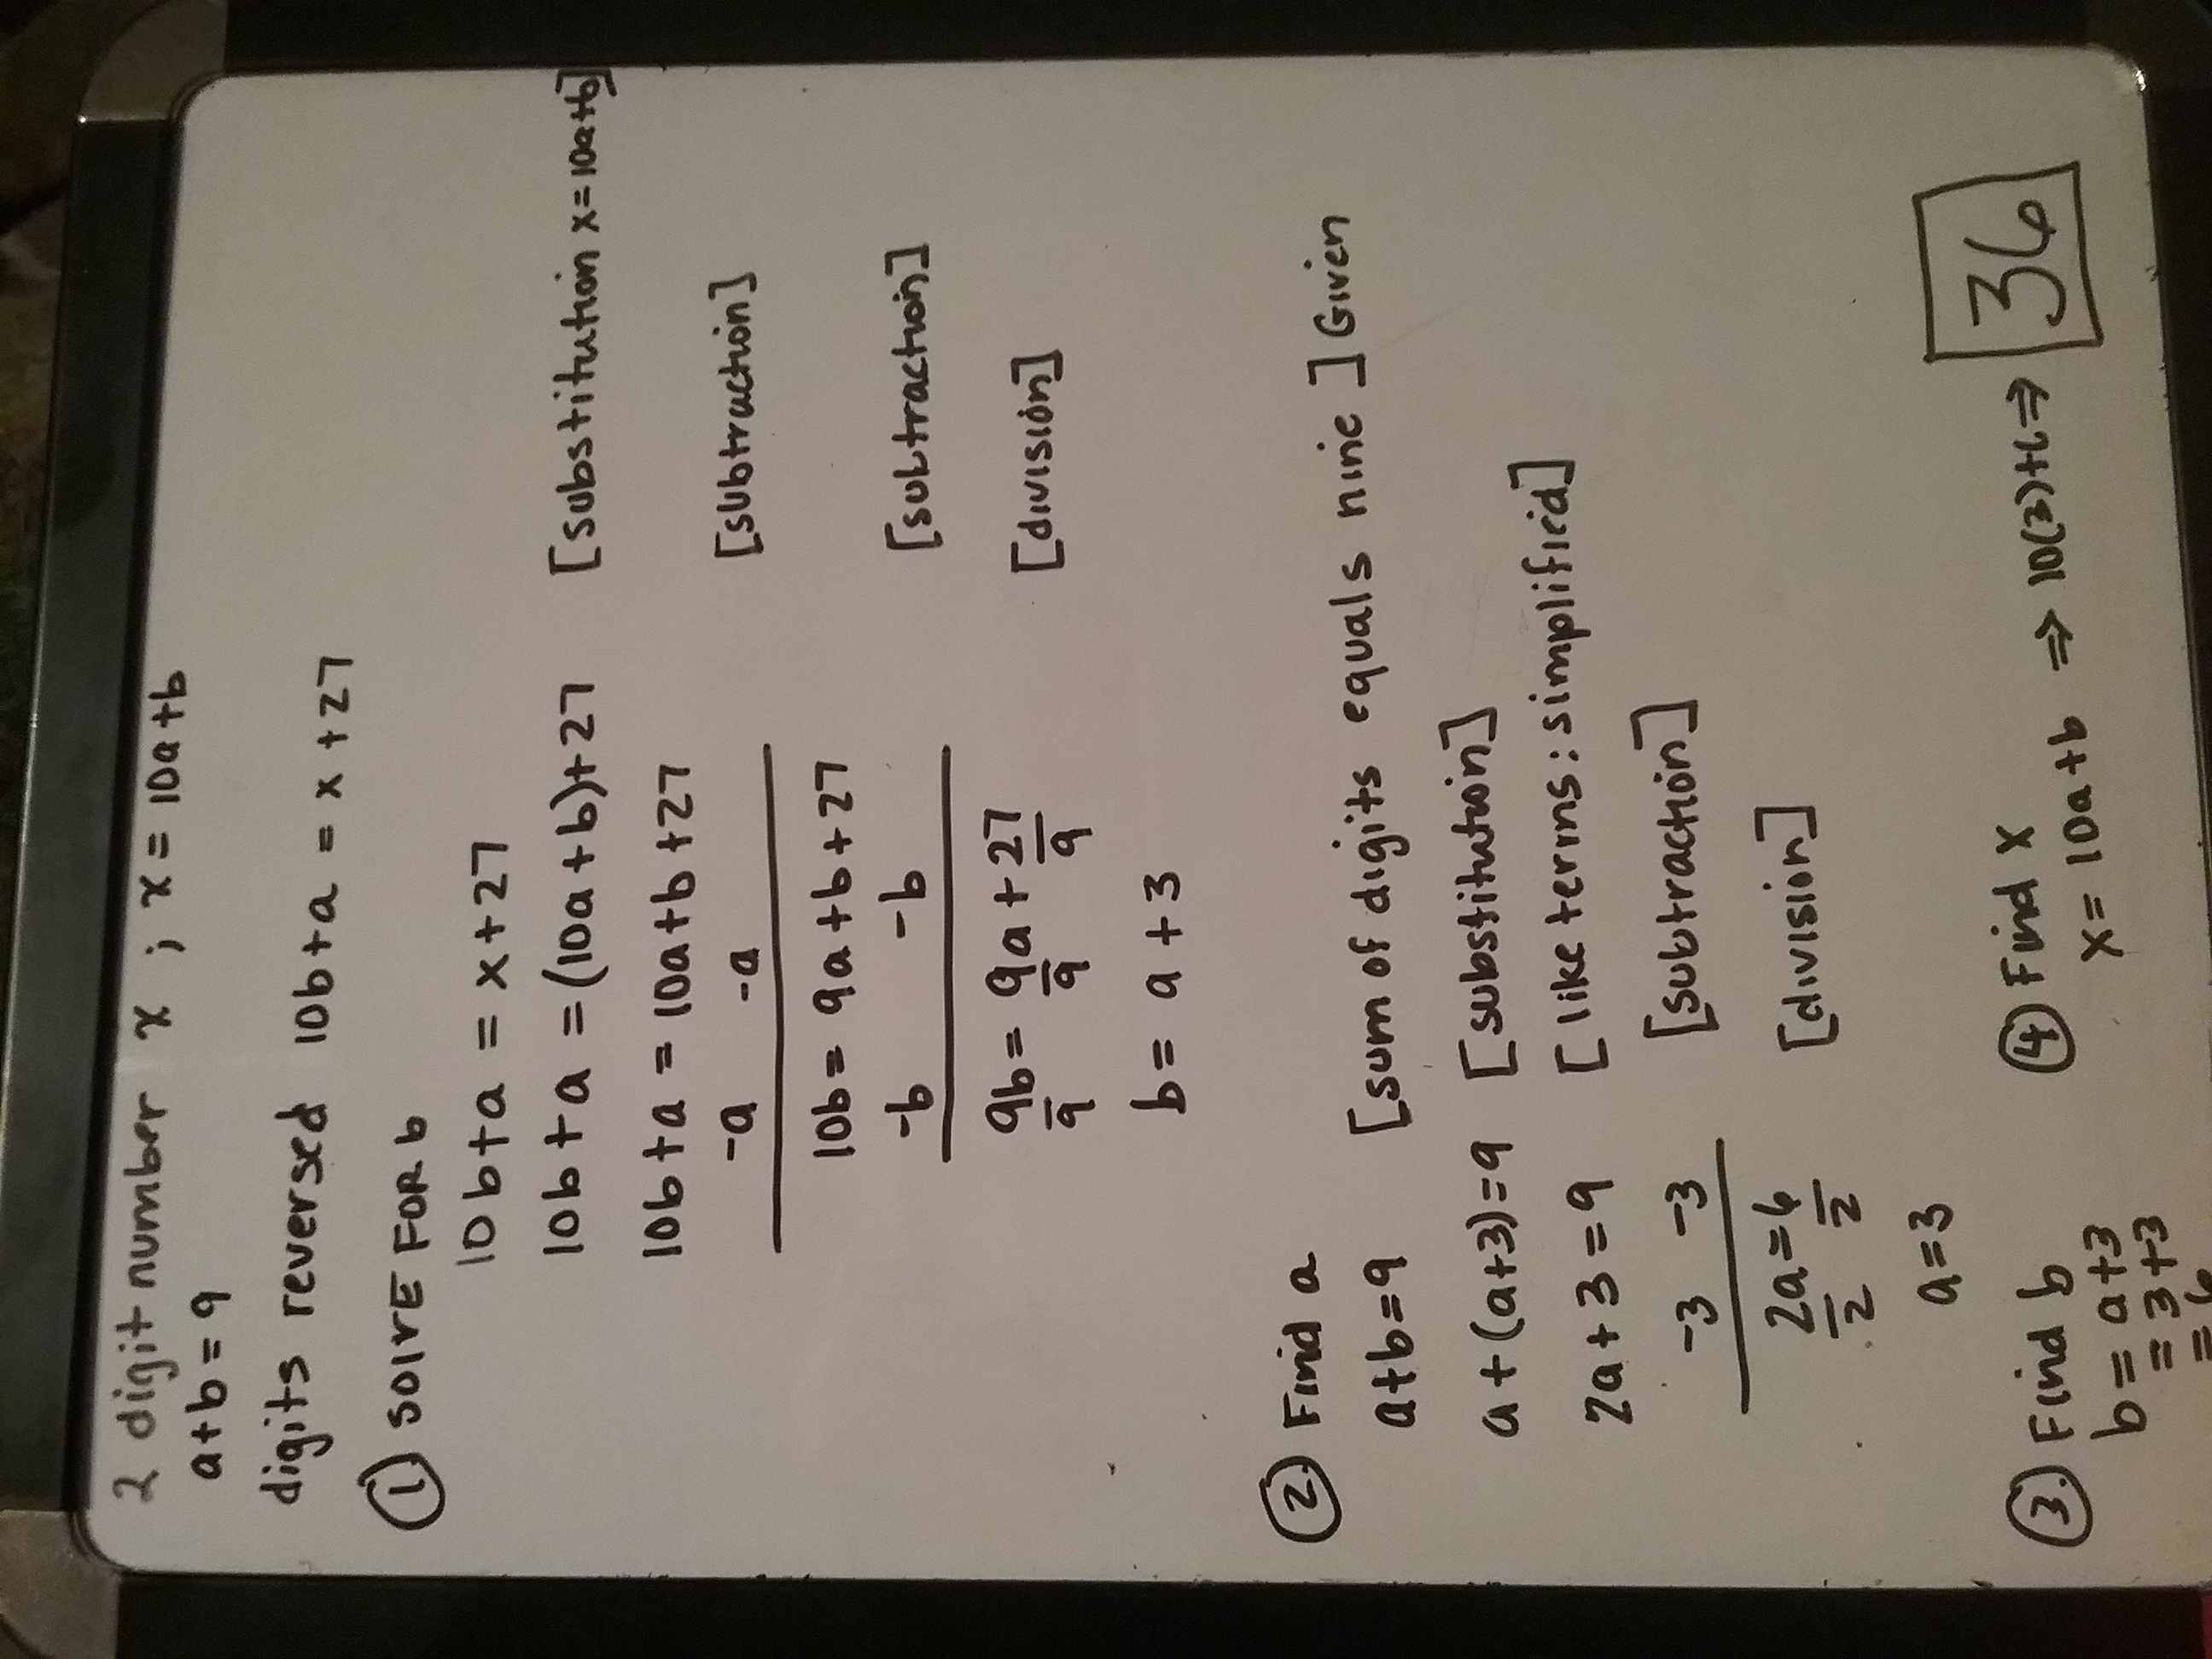 2 digit number x ; x = 10a+b
a+b=9
digits reversed 10b+a = x+27
① SOLVE FOR b
10b+a = x+27
10b+a =(10a+b)+27 [substitution x=10a+b]
10b+a = 10a+b+27
-a -a [subtraction]
10b= 9a+b+27
-b -b [subtraction]
9b= 9a+27
9 9 9 [division]
b= a+3
② Find a
a+b=9 [sum of digits equals nine] Given
a+(a+3)=9 [substitution]
2a+3=9 [like terms: simplified]
-3 -3 [subtraction]
2a=6 [division]
2 2
a=3
③ Find b
b= a+3
= 3+3
= 6
④ Find x
x= 10a+b ⇒ 10(3)+6 ⇒ 36